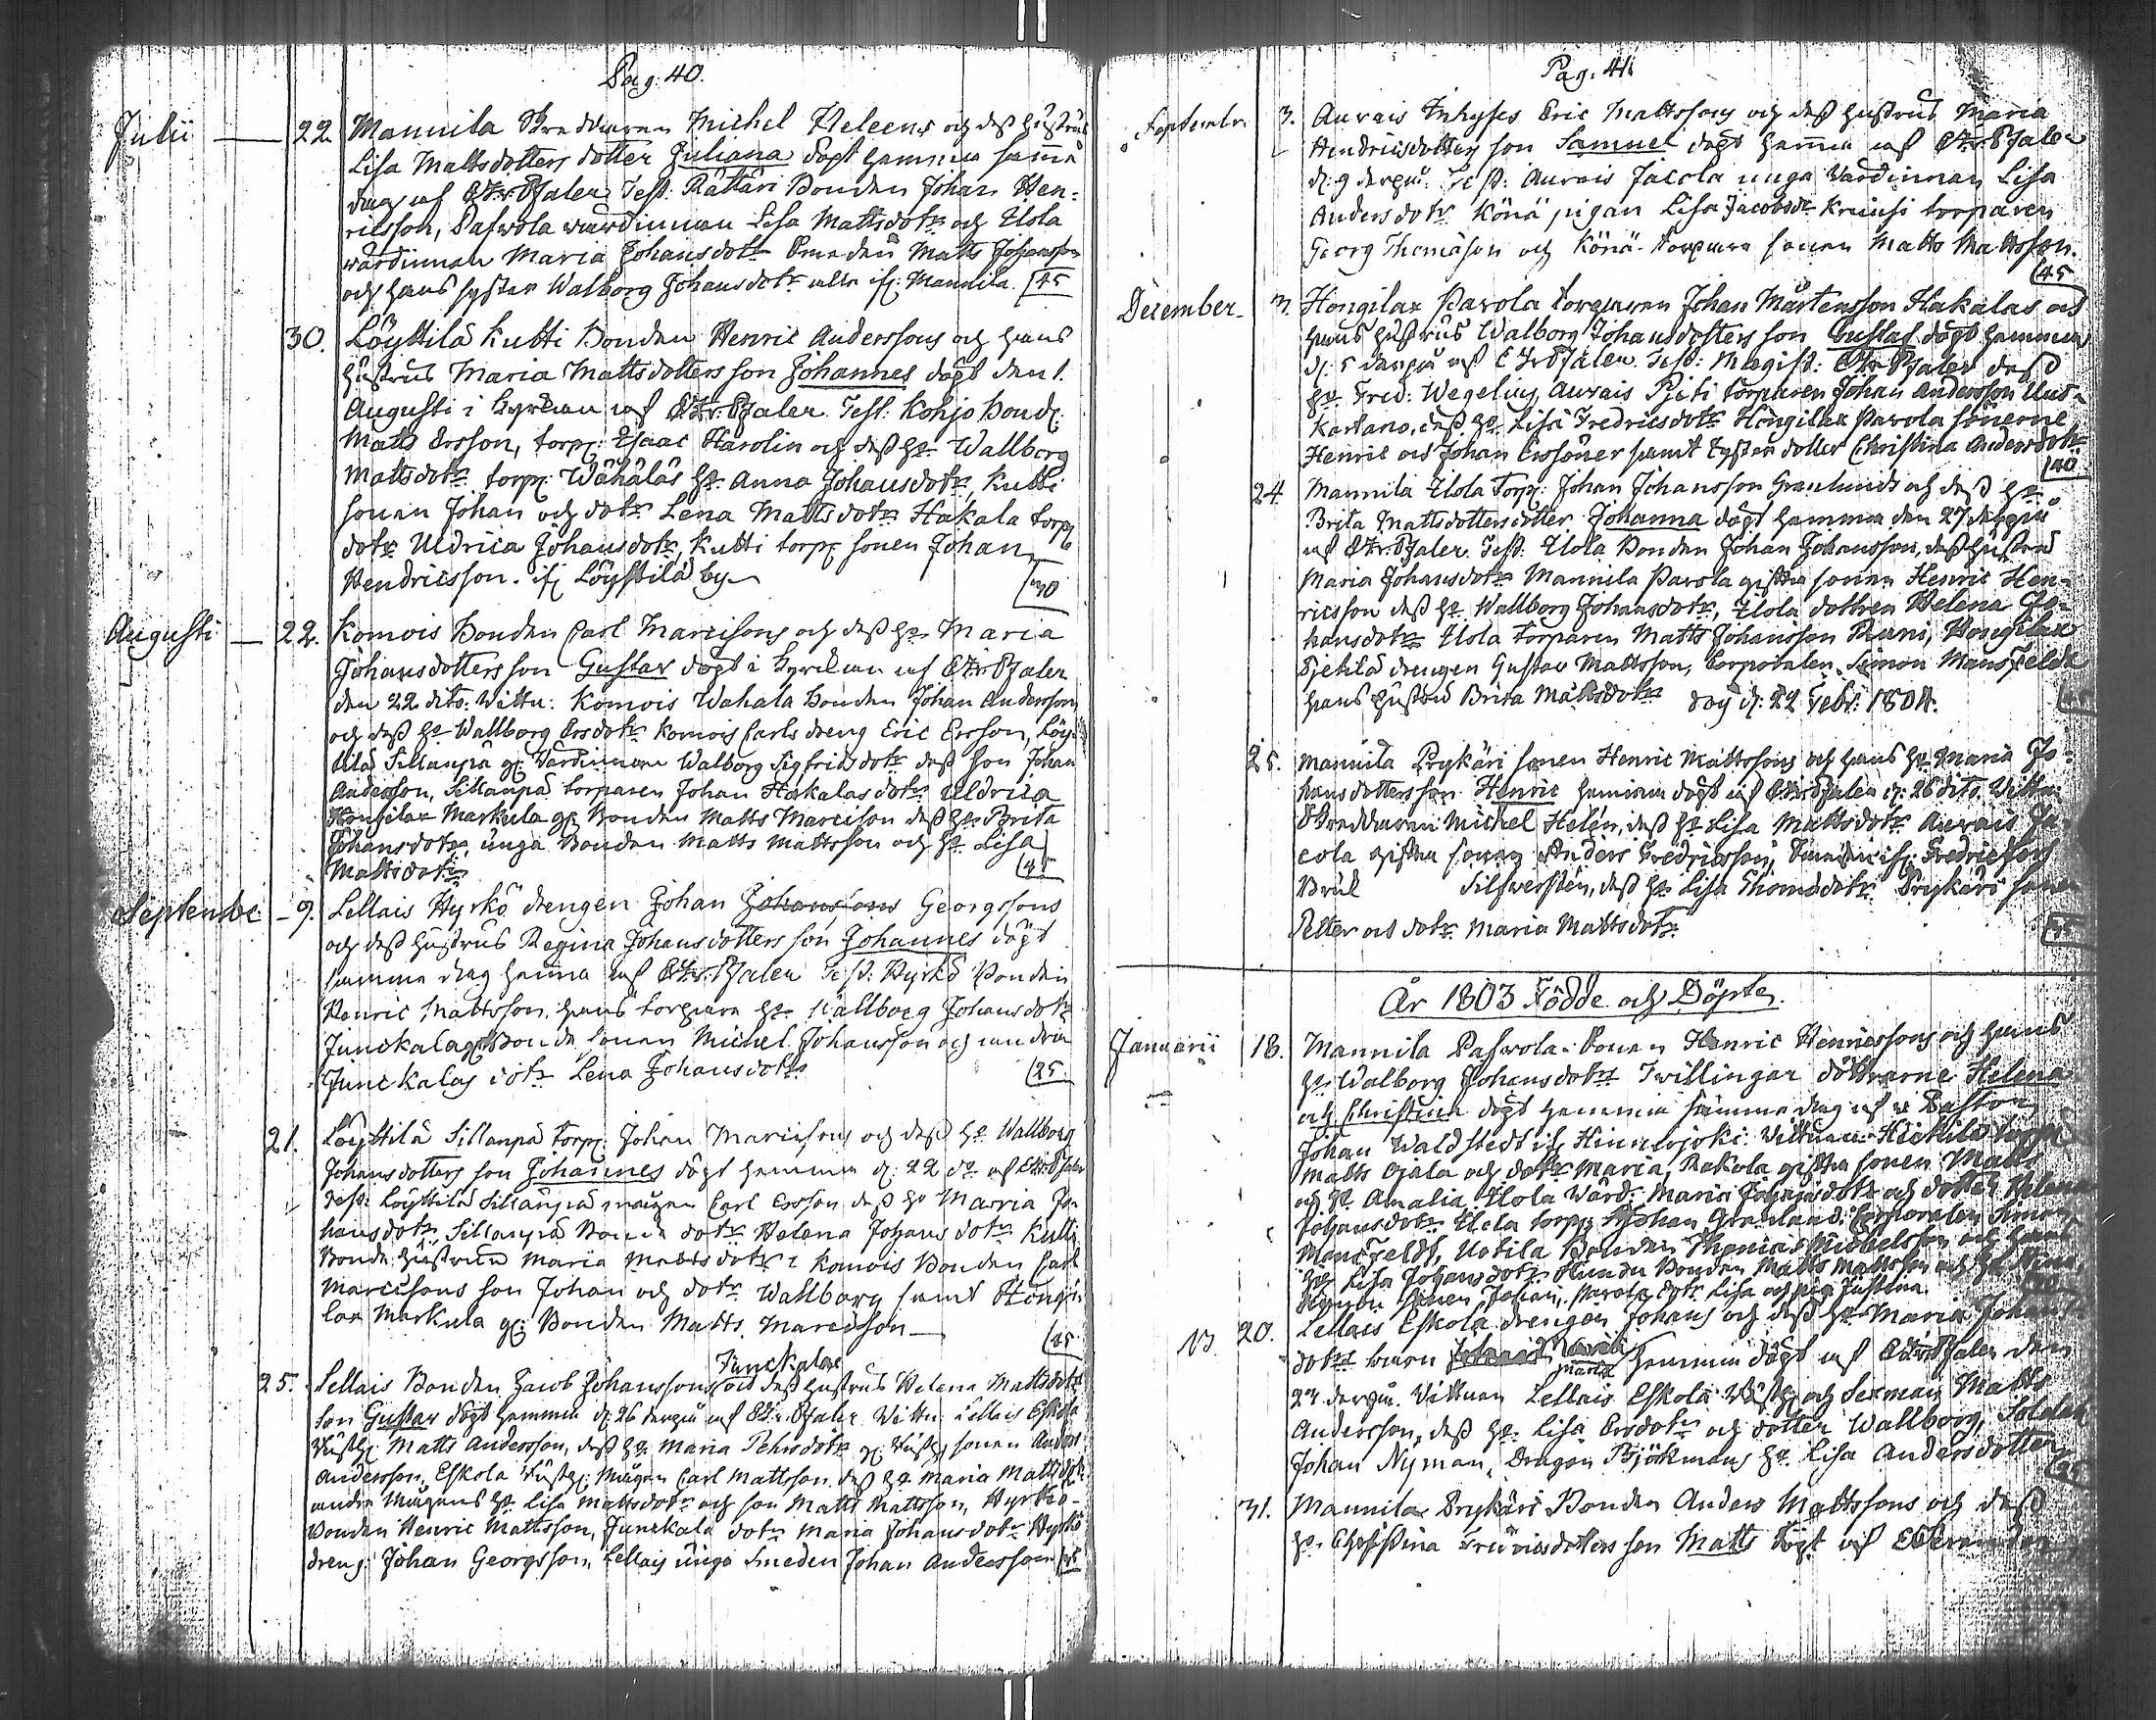 Pag. 40.
Julii — 22. Mannila Skreddaren Michel Heleens och dess hustrus
Lisa Mattsdotters dotter Juliana döpt hemma samma
dag af Pjaler Test. Rättäri Bonden Johan Hen-
ricsson, Paswola wärdinnan Lisa Mattsdotr och Ylola
wärdinnan Maria Johansdotr Smeden Matts Johansson
och hans syster Walborg Johansdotr alla ifr. Mannila. 45
30. Löyttilä Kutti Bonden Henric Anderssons och hans
hustrus Maria Mattsdotters son Johannes döpt den 1.
Augusti i Kyrckan af Pjaler Test: Kohjo Bond:
Matts Ersson, torp: Isaac Harolin och dess h:o Wallborg
Mattsdotr torp: Wähäläs h:o Anna Johansdotr, Kutti
sonen Johan och dotr Lena Mattsdotr Hakala torp:
dotr Uldrica Johansdotr, Kutti torp: sonen Johan
Hendricsson. ifr Löyttilä by 30
Augusti — 22. Komois Bonden Carl Marcisons och dess h:o Maria
Johansdotters son Gustav döpt i Kyrckan af Pjaler
den 22 dito. Wittn: Komois Wahala Bonden Johan Andersson
och dess h:o Wallborg Ersdotr Komois Carls dreng Eric Ersson, Löy-
tilä Sillanpä gl: Wärdinnan Walborg Sigfridsdotr dess son Johan
Andersson, Sillanpä torparen Johan Hakalas dotr Uldrica
Hongilax Markula gl: Bonden Matts Marcison dess h:o Brita
Johansdotr, unga Bonden Matts Mattsson och h:o Lisa
Mattsdotr 45
September — 9. Lellais Hyrkö drengen Johan Johanssons Georgssons
och dess hustrus Regina Johansdotters son Johannes döpt
samma dag hemma af Pjaler Test: Hyrkö Bonden
Henric Mattsson, hans torpare h:o Wallborg Johansdotr
Junckala Bonde sonen Michel Johansson och andra
Junckalas dotr Lena Johansdotr 25.
21. Löyttilä Sillanpä torp: Johan Marcisons och dess h:o Wallborg
Johansdotters son Johannes döpt hemma d: 22 d:o af Pjaler
Test: Löyttilä Sillänpä mågen Carl Ersson dess h:o Maria Jo-
hansdotr, Sillanpä Bonde dotr Helena Johansdotr Kutti
Bonde hustrun Maria Mattsdotr Komois Bonden Carl
Marcisons son Johan och dotr Wallborg samt Hongi-
lax Markula gl: Bonden Matts Marcisson — 45
25. Lellais Bonden Jacob Johanssons Junckalas och dess hustrus Helena Mattsdotr
son Gustav döpt hemma d: 26 derpå af Pjaler Wittn: Lellais Eskola
Rusth: Matts Andersson, dess h:o Maria Pehrsdotr gl: Rusth: sonen Anders
Andersson, Eskola Rusth: Mågen Carl Mattsson dess h:o Maria Mattsdotr
andra Mågens h:o Lisa Mattsdotr och son Matts Mattsson, Hyrkö-
Bonden Henric Mattsson, Junckala dotr Maria Johansdotr Hyrkö
dreng: Johan Georgsson, Lellais unga Smeden Johan Andersson
Pag. 41.
September 3. Aurais Inhyses Eric Mattssons och dess hustrus Maria
Hendricsdotters son Samuel döpt hemma af Pjaler
d: 9 derpå. Test: Aurais Jacola unga wärdinnan Lisa
Andersdotr Könä pigan Lisa Jacobsdr Kruusi torparen
Georg Thomäson och Könä-torpare sonen Matts Mattsson.
45
December 3. Hongilax Parola torparen Johan Mårtensson Hakalas och
hans hustrus Walborg Johansdotters son Gustaf döpt hemma
d: 5 derpå af Pjaler. Test: Magist: Pjaler dess
h:o Fred: Wegelius, Aurais Pjeti torparen Johan Andersson Uus-
kartano, dess h:o Lisa Fredricsdotr Hongilax Parola sönerne
Henric och Johan Erssöner samt syster dotter Christina Andersdotr
40
24. Mannila Ylola Torp: Johan Johansson Granlunds och dess h:o
Brita Mattsdotters dotter Johanna döpt hemma den 27 derpå
af Pjaler. Test: Ylola Bonden Johan Johansson, dess hustru
Maria Johansdotr Mannila Parola gifta sonen Henric Hen-
ricsson dess h:o Wallborg Johansdotr, Ylola dottren Helena Jo-
hansdotr Ylola torparen Matts Johansson Hongilax
Pjetilä drengen Gustav Mattsson, Corporalen Simon Mansfeldt
hans hustru Brita Mattsdotr dog d: 22 Febr: 1804.
25. Mannila Prykäri sonen Henric Mattssons och hans h:o Maria Jo-
hansdotters son Henric hemma döpt af Pjaler d: 26 dito. Wittn:
Skreddaren Michel Helén, dess h:o Lisa Mattsdotr Aurais Ja-
cola gifta sonen Anders Fredricsson, Fredricsfors
Bruk Silfwersten, dess h:o Lisa Thomädotr. Prykäri sonen
Petter och dotr Maria Mattsdotr.
År 1803 Födde och Döpte.
Januarii 18. Mannila Paswola Sonen Henric Henricssons och hans
h:o Walborg Johansdotrs Twillingar döttrarne Helena
och Christina döpt hemma samma dag af Pastor
Johan Waldstedt ifr Hinnerjoki. Wittn: Heikilä
Matts Ojala och dotr Maria, Rakola gifta sonen Matts
och h:o Amalia, Ylola Wärd: Maria Johansdotr och dotter Helena
Johansdotr Ylola torp: Johan Granlund, Corporalen Simon
Mansfeldt, Uotila Bonden Thomas Michelsson och hans
h:o Lisa Johansdotr Hundu Bonden Matts Mattsson och h:o
sonen Johan, Parola dotr Lisa och pig Justina.
20. Lellais Eskola drengen Johans och dess h:o Maria Johans-
dotrs barn Maria hemma döpt af Pjaler den
derpå. Wittnen Lellais Eskola Rusth: och Sexman Matts
Andersson, dess h:o Lisa Ersdotr och dotter Wallborg, Soldat
Johan Nyman, Dragon Björkmans h:o Lisa Andersdotter
31. Mannila Prykäri Bonden Anders Mattssons och dess
h:o Christina Fredricsdotters son Matts döpt af